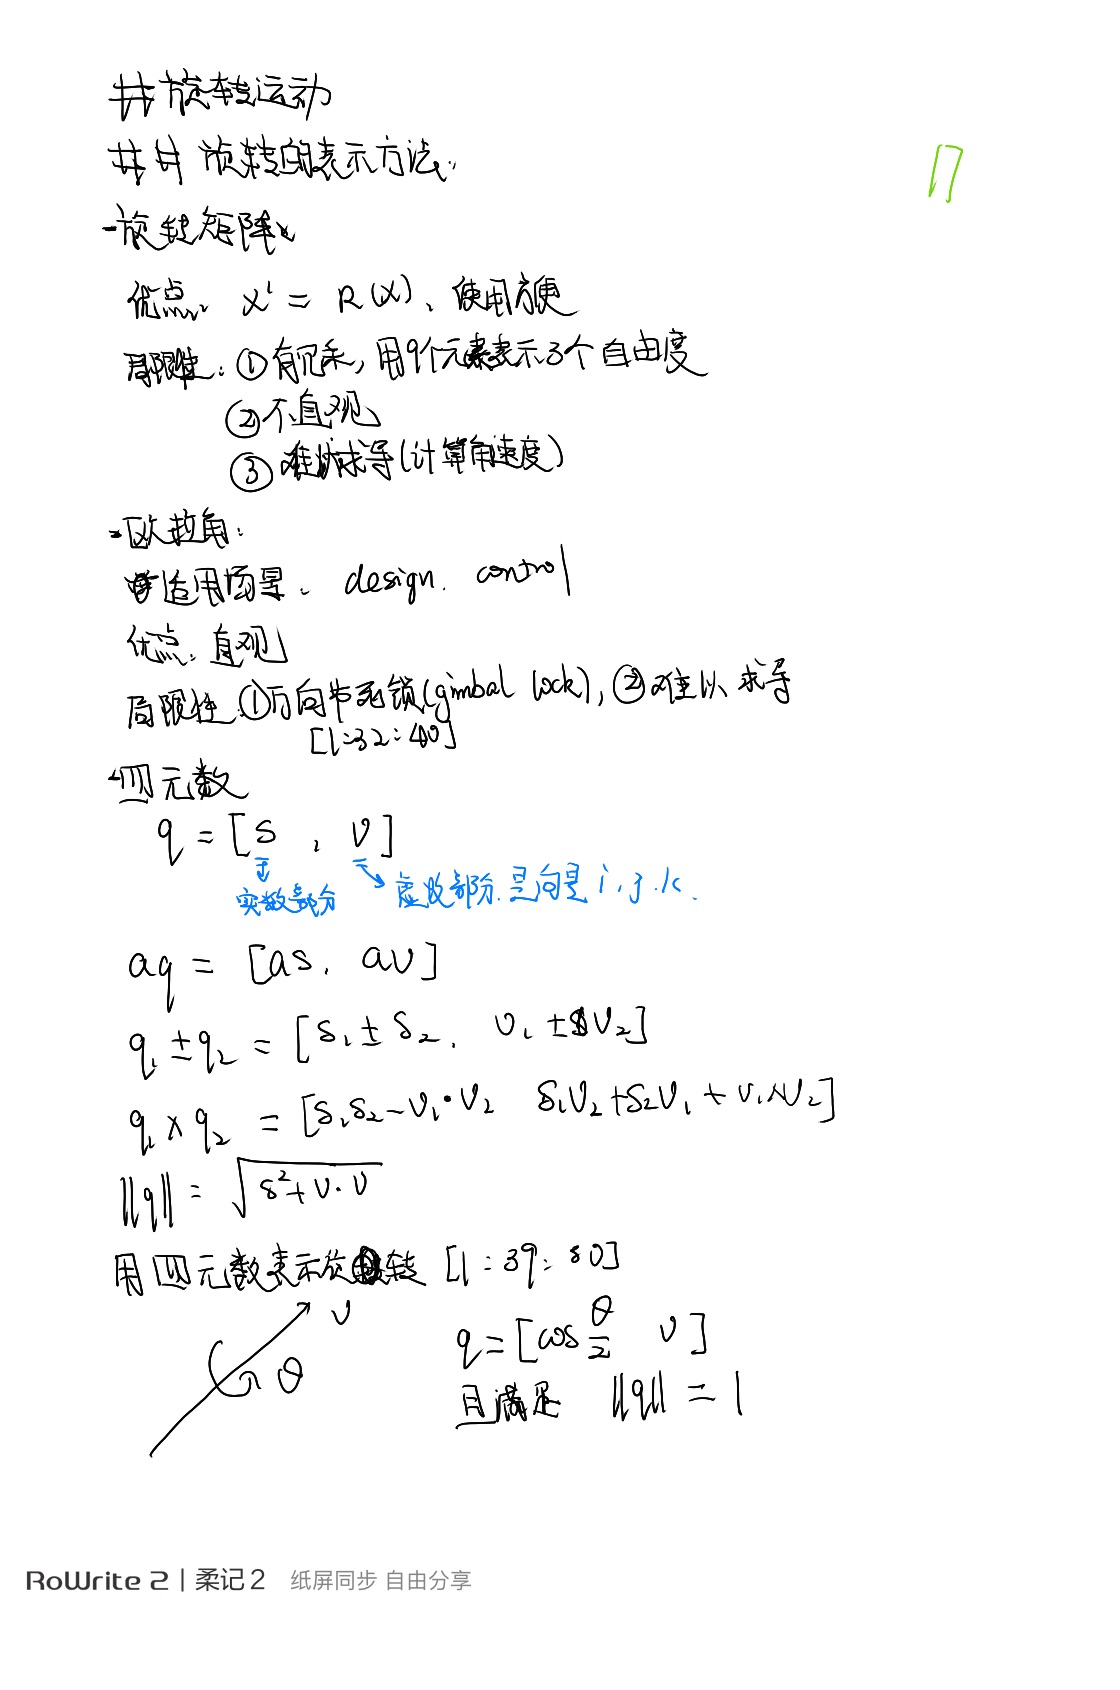 ## 旋转运动
### 旋转的表示方法:
17
- 旋转矩阵
优点: x' = R(x)、使用方便
局限性: ① 有冗余, 用9个元素表示3个自由度
② 不直观
③ 难以求导(计算角速度)
- 欧拉角:
适用场景: design. control
优点: 直观
局限性: ①万向节死锁(gimbal lock), ②难以求导
[1:32:40]
- 四元数
q = [s , v]
实数部分 虚数部分.是向量 i.j.k.
aq = [as. av]
q₁ ± q₂ = [s₁ ± s₂. v₁ ± v₂]
q₁ × q₂ = [s₁s₂ - v₁•v₂ s₁v₂ + s₂v₁ + v₁×v₂]
||q|| = √(s² + v·v)
用四元数表示旋转 [1:39:50]
v
θ
q = [cos θ/2 v]
且满足 ||q|| = 1
RoWrite 2 | 柔记 2 纸屏同步 自由分享